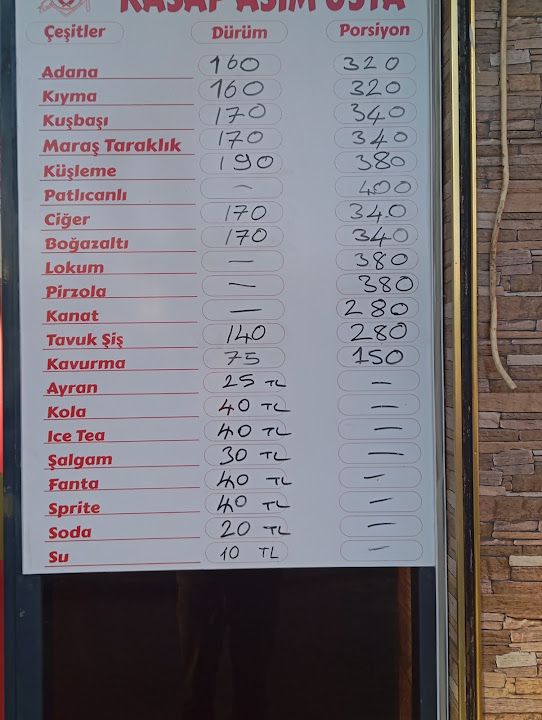 KASAP ASIM USTA
Çeşitler Dürüm Porsiyon
Adana 160 320
Kıyma 160 320
Kuşbaşı 170 340
Maraş Taraklık 170 340
Küşleme 190 380
Patlıcanlı - 400
Ciğer 170 340
Boğazaltı 170 340
Lokum - 380
Pirzola - 380
Kanat - 280
Tavuk Şiş 140 280
Kavurma 75 150
Ayran 25 TL -
Kola 40 TL -
Ice Tea 40 TL -
Şalgam 30 TL -
Fanta 40 TL -
Sprite 40 TL -
Soda 20 TL -
Su 10 TL -